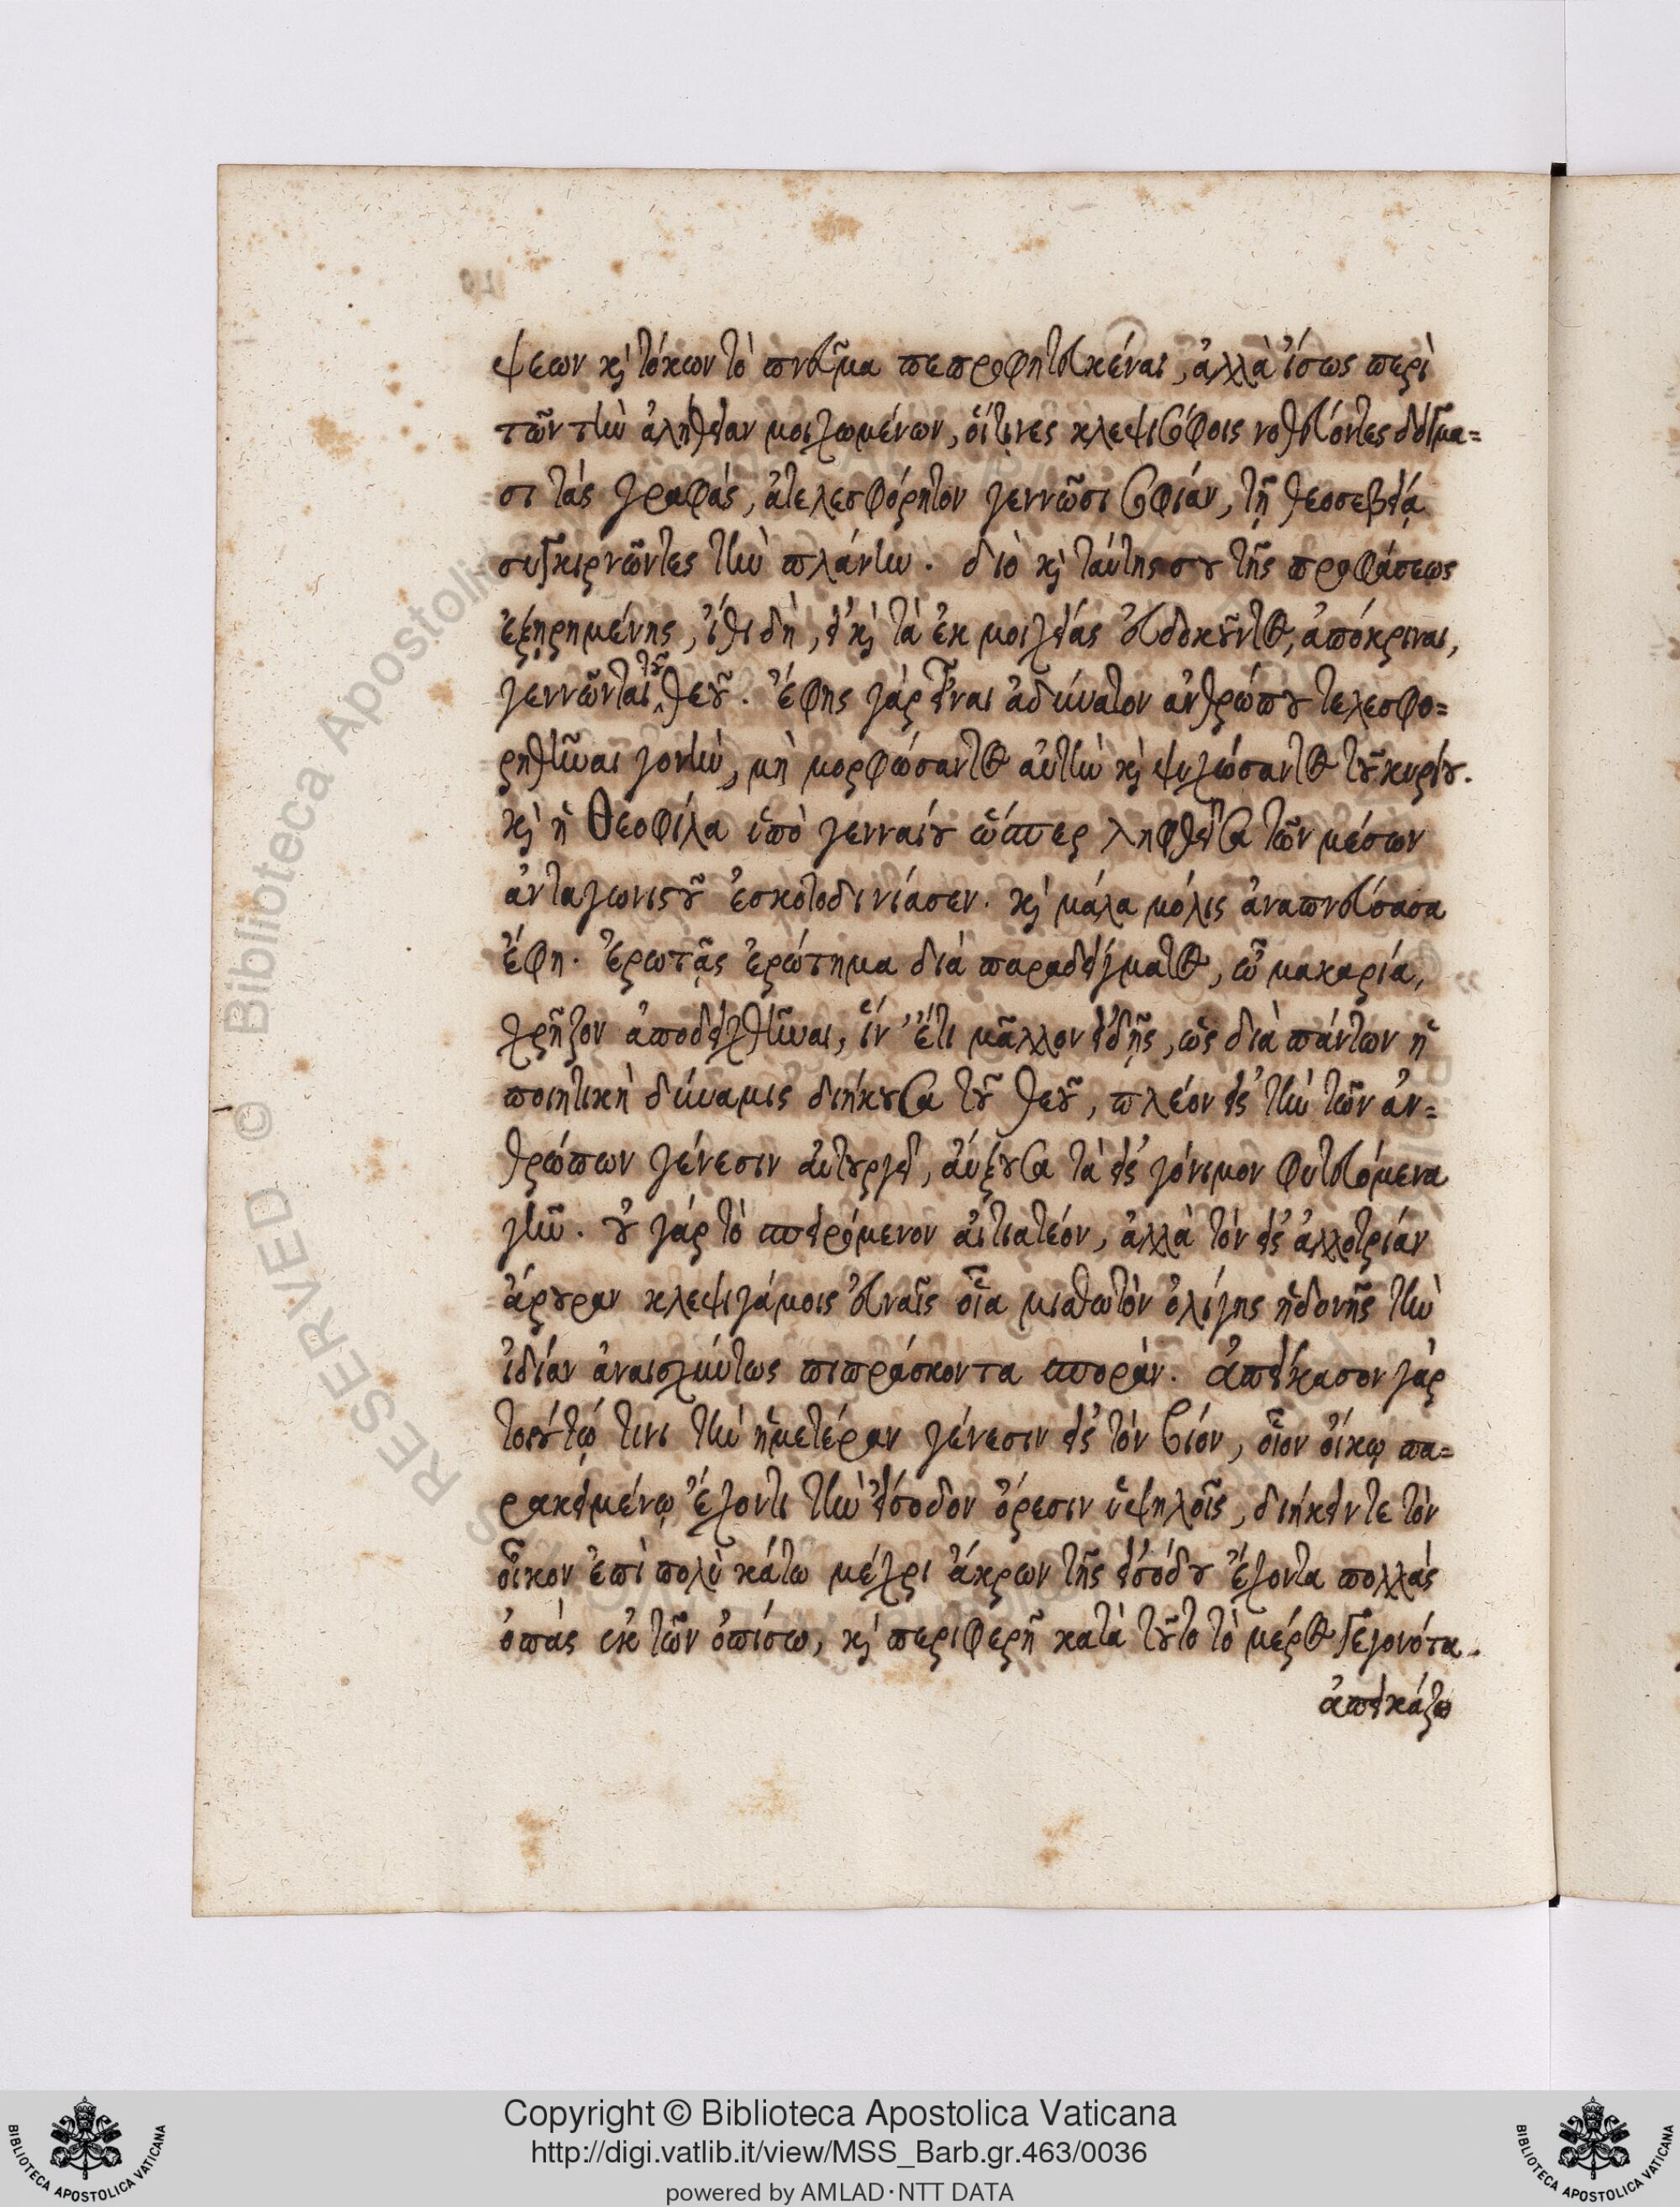 ψεων καὶ τόκων τὸ πνεῦμα πεπροφητευκέναι, ἀλλὰ ἴσως περὶ
τῶν τὴν ἀλήθειαν μοιχωμένων, οἵτινες κλεψισόφοις νοθεύοντες δόγμα=
σι τὰς γραφάς, ἀτελεσφόρητον γεννῶσι σοφίαν, τῇ θεοσεβείᾳ
συγκιρνῶντες τὴν πλάνην. διὸ καὶ ταύτης σου τῆς προφάσεως
ἐξῃρημένης, ἴθι δὴ, εἰ καὶ τὰ ἐκ μοιχείας εὐδοκοῦντος, ἀπόκριναι,
γεννῶνται τοῦ θεοῦ. ἔφης γὰρ εἶναι ἀδύνατον ἀνθρώπου τελεσφο=
ρηθῆναι γονὴν, μὴ μορφώσαντος αὐτὴν καὶ ψυχώσαντος τοῦ κυρίου.
καὶ ἡ Θεοφίλα ὑπὸ γενναίου ὥσπερ ληφθεῖσα τῶν μέσων
ἀνταγωνιστοῦ ἐσκοτοδινίασεν. καὶ μάλα μόλις ἀναπνεύσασα
ἔφη. ἐρωτᾷς ἐρώτημα διὰ παραδείγματος, ὦ μακαρία,
χρῇζον ἀποδειχθῆναι, ἵν' ἔτι μᾶλλον εἰδῇς, ὡς διὰ πάντων ἡ
ποιητικὴ δύναμις διήκουσα τοῦ θεοῦ, πλέον εἰς τὴν τῶν ἀν=
θρώπων γένεσιν αὐτουργεῖ, αὔξουσα τὰ εἰς γόνιμον φυτευόμενα
γῆν. οὐ γὰρ τὸ σπειρόμενον αἰτιατέον, ἀλλὰ τὸν εἰς ἀλλοτρίαν
ἄρουραν κλεψιγάμοις εὐναῖς οἷα μισθωτὸν ὀλίγης ἡδονῆς τὴν
ἰδίαν ἀναισχύντως πιπράσκοντα σποράν. ἀπείκασον γὰρ
τοιούτῳ τινι τὴν ἡμετέραν γένεσιν εἰς τὸν βίον, οἷον οἴκῳ πα=
ρακειμένῳ ἔχοντι τὴν εἴσοδον ὄρεσιν ὑψηλοῖς, διήκειν τε τὸν
οἶκον ἐπὶ πολὺ κάτω μέχρι ἄκρων τῆς εἰσόδου ἔχοντα πολλὰς
ὀπὰς ἐκ τῶν ὀπίσω, καὶ περιφερῆ κατὰ τοῦτο τὸ μέρος γεγονότα.
ἀπεικάζω
RESERVED © Biblioteca Apostolica
BIBLIOTECA APOSTOLICA VATICANA
Copyright © Biblioteca Apostolica Vaticana
http://digi.vatlib.it/view/MSS_Barb.gr.463/0036
powered by AMLAD·NTT DATA
BIBLIOTECA APOSTOLICA VATICANA